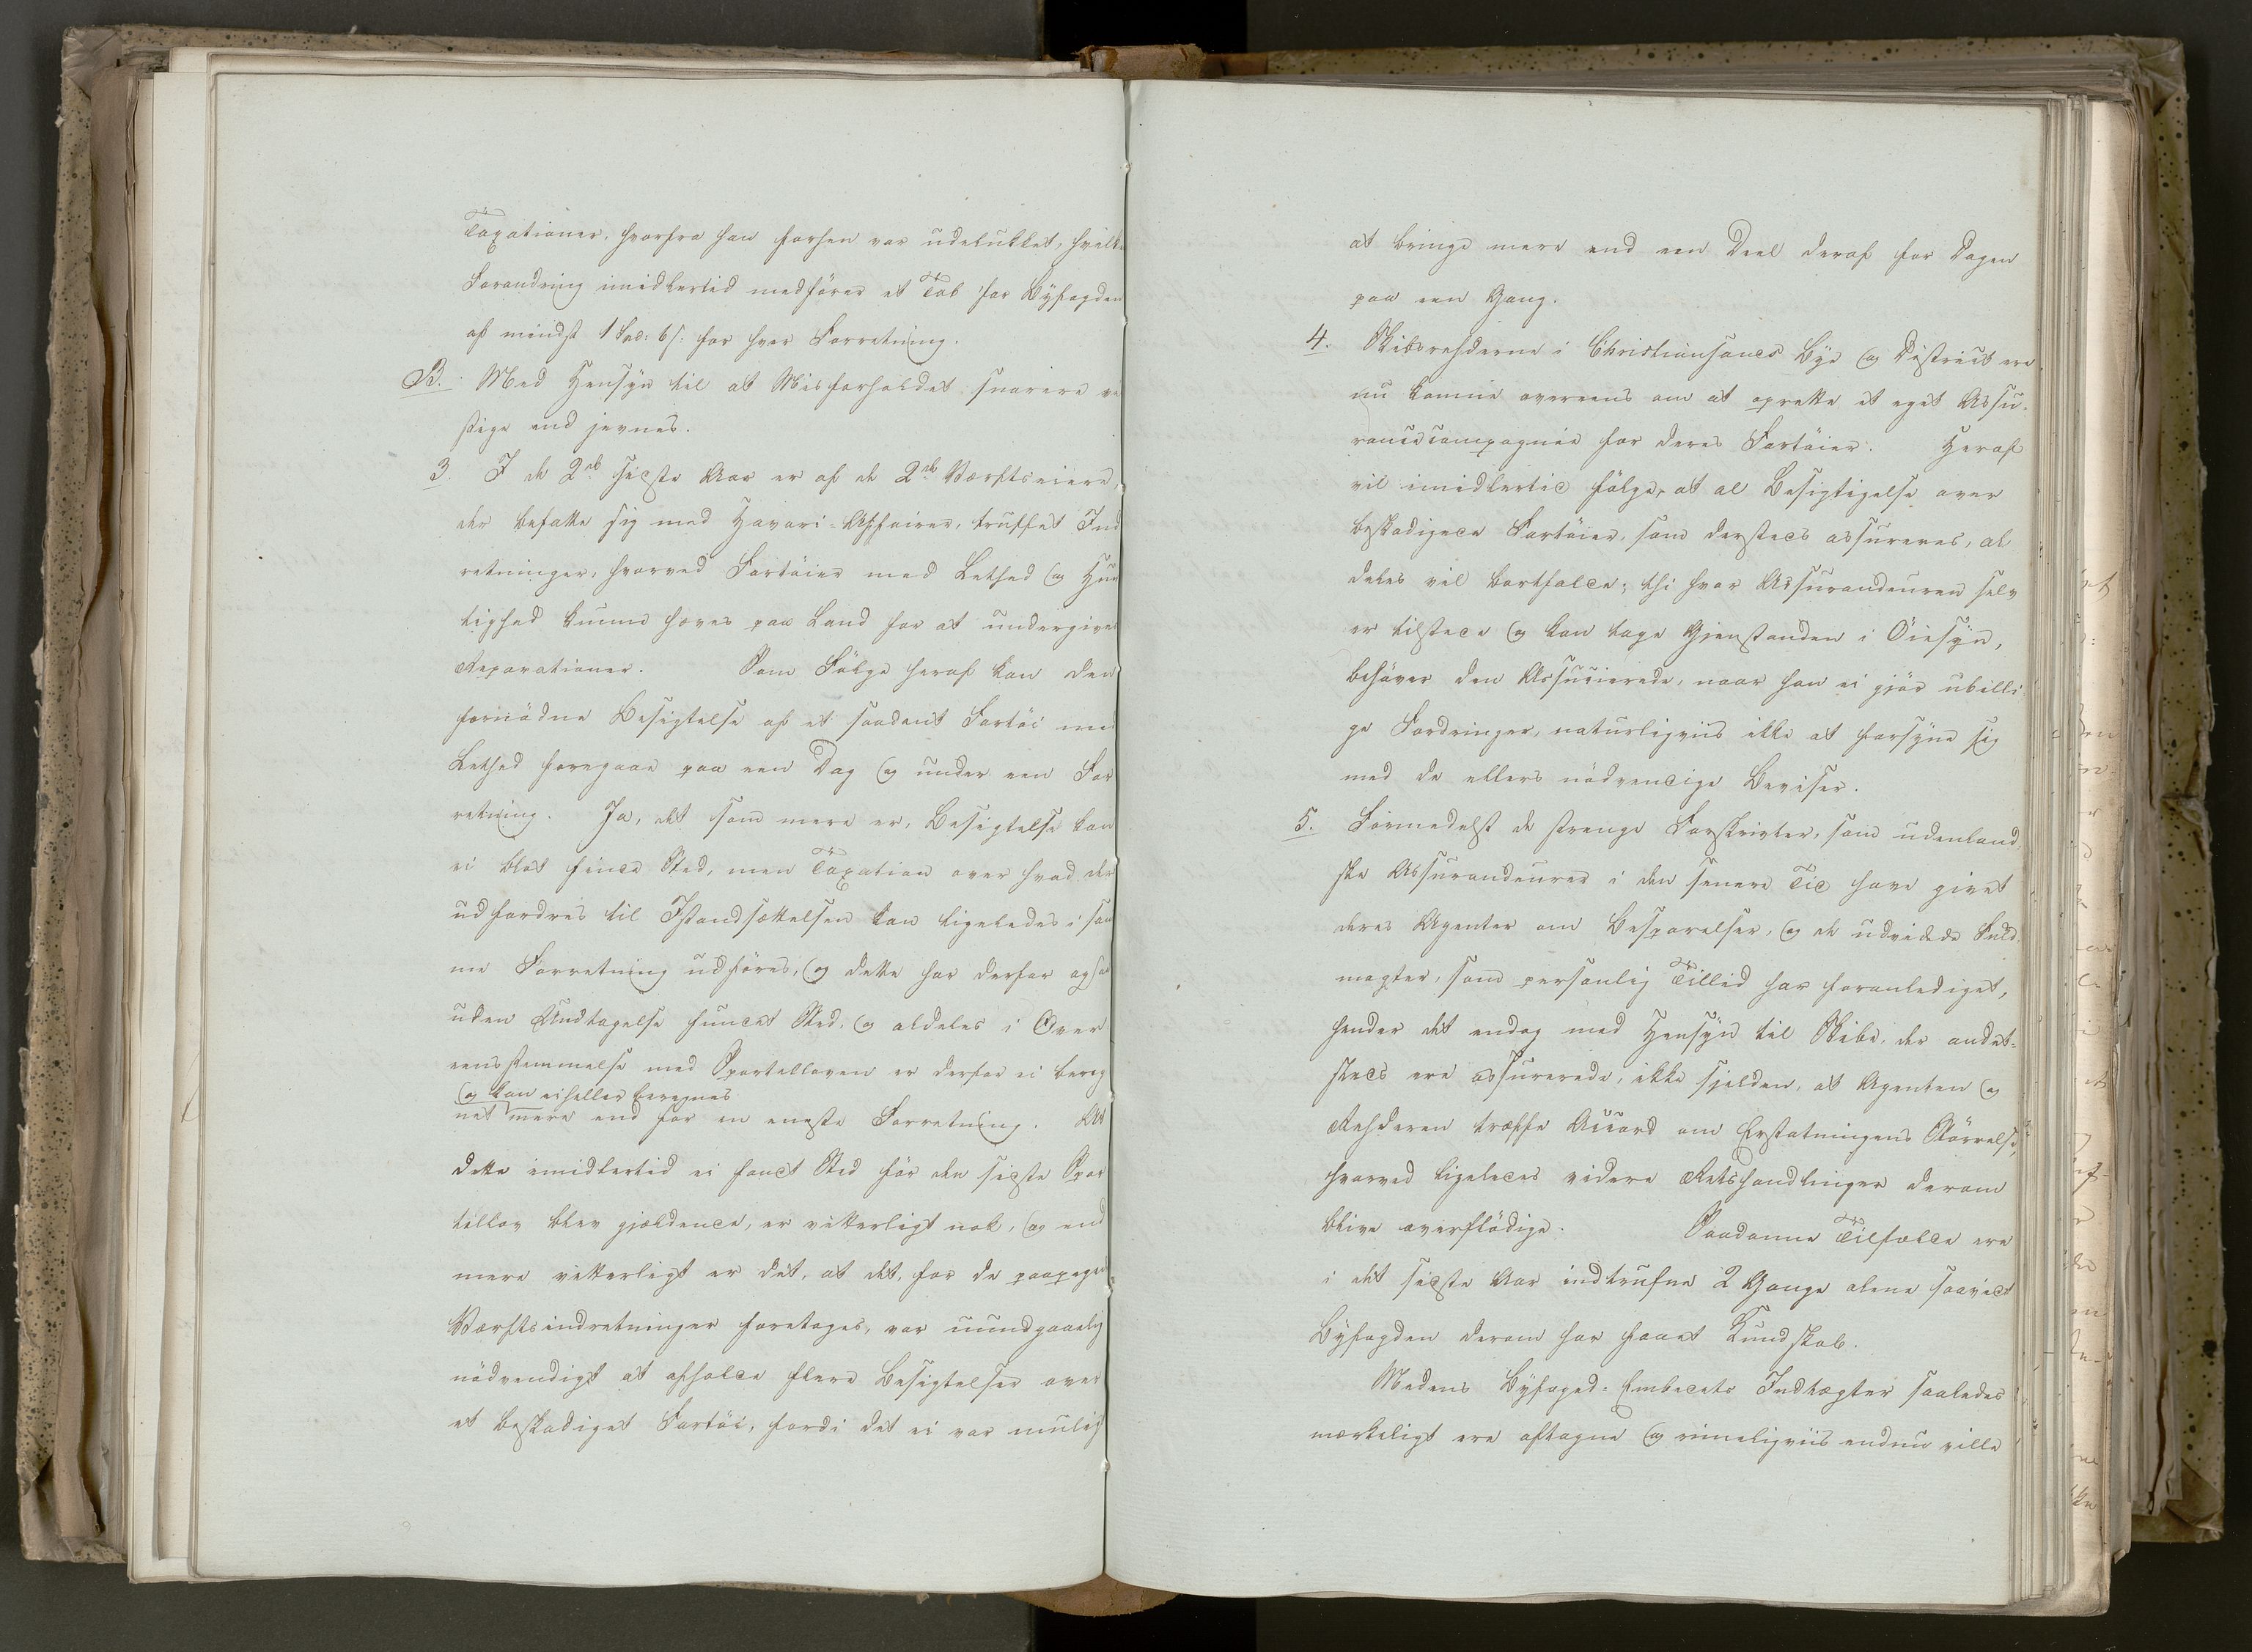 Taxationer, hvorfra han forhen var udelukket, hvilke
Forandring imidlertid medfører et Tab for Byfogden
af mindst 1 Spd: 6 s: for hver Forretning.
B. Med Hensyn til at Misforholdet snarere ve
stige end jevnes.
3. I de 2de sidste Aar er af de 2de Værftseiere,
der befatte sig med Havari-Affairer, truffet Ind
retninger, hvorved Fartøier med Lethed og Hur
tighed kunne hæves paa Land for at undergives
Reparationer. Som Følge heraf kan den
fornødne Besigtelse af et saadant Fartøi med
Lethed foregaae paa een Dag og under een For
retning. Ja, det som mere er, Besigtelse kan
ei blot finde Sted, men Taxation over hvad der
udfordres til Istandsættelsen kan ligeledes i sam
me Forretning udføres, og dette har derfor ogsaa
uden Undtagelse fundet Sted, og aldeles i Over
eensstemmelse med Sportelloven er derfor ei bereg
og kan eiheller beregnes
net mere end for en eneste Forretning. At
dette imidlertid ei fandt Sted før den sidste Spor
tellov blev gjældende, er vitterligt nok, og end
mere vitterligt er det, at det, før de paapegede
Værftsindretninger foretoges, var uundgaaelig
nødvendigt at afholde flere Besigtelser over
et beskadiget Fartøi, fordi det ei var muligt
at bringe mere end een Deel deraf for Dagen
paa een Gang.
4. Skibsrehderne i Christiansands Bye og District ere
nu komne overeens om at oprette et eget Assu-
rancecompagnie for deres Fartøier. Heraf
vil imidlertid følge, at al Besigtigelse over
beskadigede Fartøier, som dersteds assureres, al
deles vil bortfalde; thi hvor Assurandeuren selv
er tilstede og kan tage Gjenstanden i Øiesyn,
behøver den Assurerede, naar han ei gjør ubilli
ge Fordringer, naturligviis ikke at forsyne sig
med de ellers nødvendige Beviser.
5. Formedelst de strenge Forskrivter, som udenland
ske Assurandeurer i den senere Tid have givet
deres Agenter om Besparelser, og de udvidede Fuld
magter, som personlig Tillid har foranlediget,
hender det endog med Hensyn til Skibe, der andet-
steds ere assurerede, ikke sjelden, at Agenten og
Rehderen træffe Accord om Erstatningens Størrelse,
hvorved ligeledes videre Retshandlinger derom
blive overflødige. Saadanne Tilfælde ere
i det sidste Aar indtrufne 2 Gange alene saavidt
Byfogden derom har faaet Kundskab.
Medens Byfoged-Embedets Indtægter saaledes
mærkeligt ere aftagne og rimeligviis endnu ville